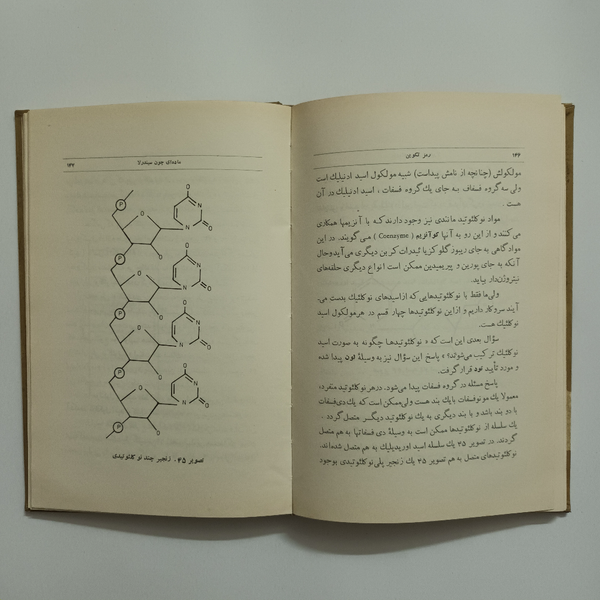 ۱۴۴
رمز تکوین
مولکولش (چنانچه از نامش پیداست) شبیه مولکول اسید ادنیلیك است
ولی سه گروه فسفات به جای یك گروه فسفات، اسید ادنیلیك در آن
هست.
مواد نوکلئوتید مانندی نیز وجود دارند که با آنزیمها همکاری
می‌کنند و از این رو به آنها کوآنزیم (Coenzyme) می‌گویند. در این
مواد گاهی به جای ریبوز گلوکز یا ئیدرات کربن دیگری می‌آید و حال
آنکه به جای پورین و پیریمیدین ممکن است انواع دیگری حلقه‌های
نیتروژن‌دار بیاید.
ولی ما فقط با نوکلئوتیدهایی که از اسیدهای نوکلئیك بدست می‌
آیند سروکار داریم و از این نوکلئوتیدها چهار قسم در هر مولکول اسید
نوکلئیك هست.
سؤال بعدی این است که «نوکلئوتیدها چگونه به صورت اسید
نوکلئیك ترکیب می‌شوند؟» پاسخ این سؤال نیز به وسیلهٔ تود پیدا شده
و مورد تأیید قرار گرفت.
پاسخ مسئله در گروه فسفات پیدا می‌شود. در هر نوکلئوتید منفرد،
معمولا یك مونوفسفات با یك بند هست ولی ممکن است که یك دی‌فسفات
با دو بند باشد و با بند دیگری به یك نوکلئوتید دیگر متصل گردد.
یك سلسله از نوکلئوتیدها ممکن است به وسیلهٔ دی فسفاتها به هم متصل
گردند. در تصویر ۴۵ یك سلسله اسید اوریدیلیك به هم متصل شده‌اند.
نوکلئوتیدهای متصل به هم تصویر ۴۵ یك زنجیر پلی نوکلئوتیدی بوجود
ماده‌ای چون سیندرلا
P
O
O
N
N
O
O
P
O
O
N
N
O
O
P
O
O
N
N
O
O
P
O
O
N
N
O
O
P
تصویر ۴۵. زنجیر چند نوکلئوتیدی